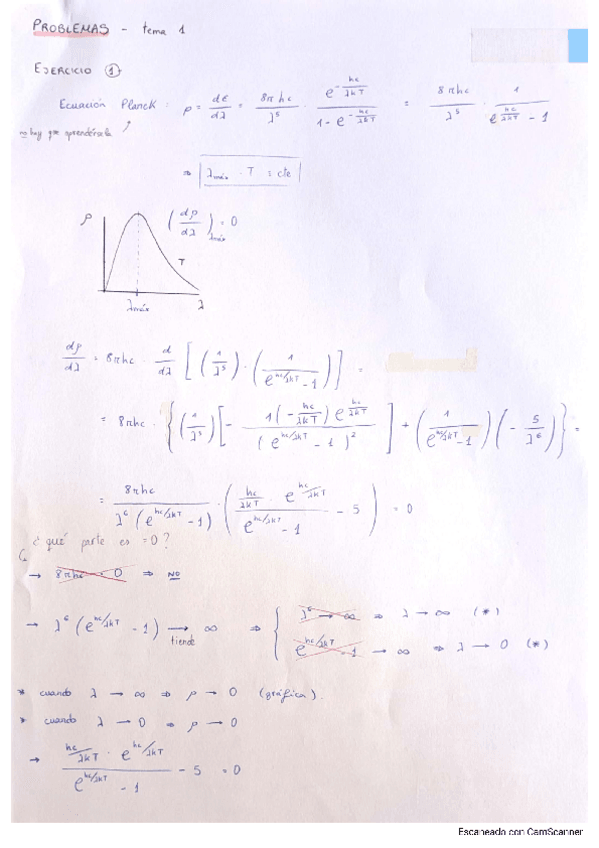 PROBLEMAS - tema 1
EJERCICIO ①
Ecuación Planck: ρ = dϵ/dλ = 8πhc/λ⁵ · e^(-hc/λkT) / (1 - e^(-hc/λkT)) = 8πhc/λ⁵ · 1/(e^(hc/λkT) - 1)
no hay que aprendérsela
⇒ λmáx · T = cte
ρ (dρ/dλ)λmáx = 0
T
λmáx λ
dρ/dλ = 8πhc · d/dλ [(1/λ⁵) · (1/(e^(hc/λkT) - 1))] =
= 8πhc · {(1/λ⁵) [- 1(-hc/λkT) e^(hc/λkT) / (e^(hc/λkT) - 1)²] + (1/(e^(hc/λkT) - 1)) (- 5/λ⁶)} =
= 8πhc / (λ⁶ (e^(hc/λkT) - 1)) · (hc/λkT · e^(hc/λkT) / (e^(hc/λkT) - 1) - 5) = 0
¿ qué parte es = 0 ?
→ 8πhc = 0 ⇒ NO
→ λ⁶ (e^(hc/λkT) - 1) → tiende ∞ ⇒ { λ⁶ → ∞ ⇒ λ → ∞ (*)
e^(hc/λkT) - 1 → ∞ ⇒ λ → 0 (*)
* cuando λ → ∞ ⇒ ρ → 0 (gráfica).
* cuando λ → 0 ⇒ ρ → 0
→ hc/λkT · e^(hc/λkT) / (e^(hc/λkT) - 1) - 5 = 0
Escaneado con CamScanner